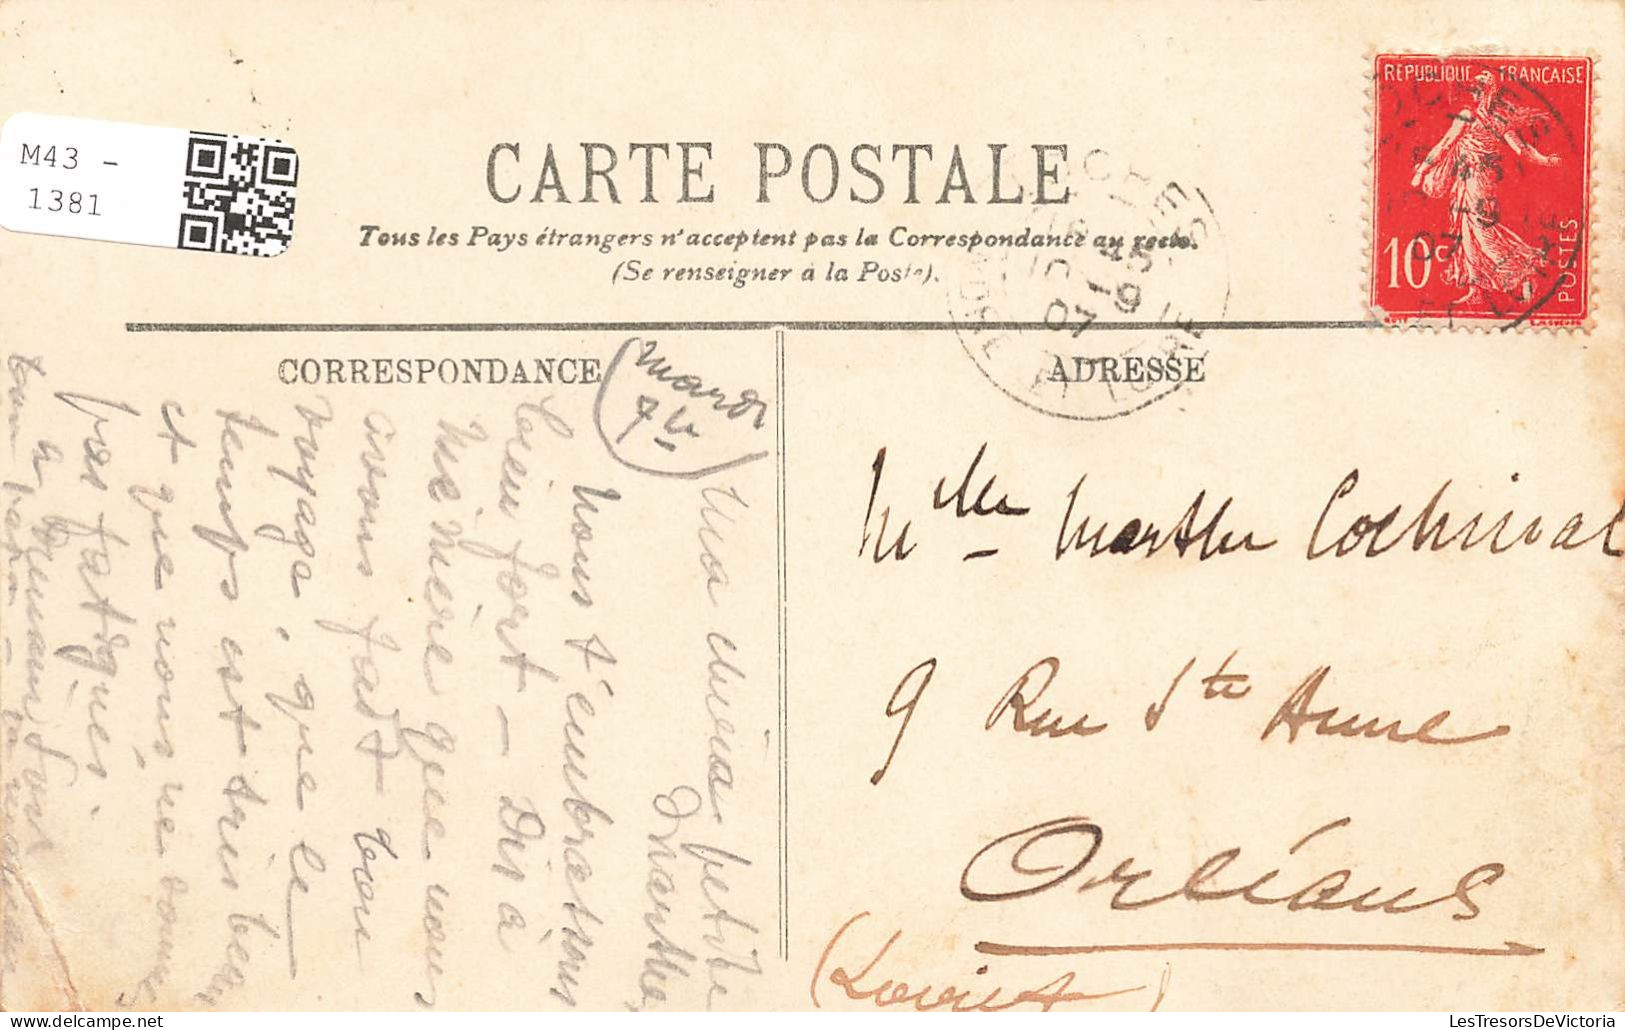 M43 -
1381
CARTE POSTALE
Tous les Pays étrangers n'acceptent pas la Correspondance au recto.
(Se renseigner à la Poste).
REPUBLIQUE FRANÇAISE
10c
POSTES
15 45
10 - 9
07
LOIRE
CORRESPONDANCE
ADRESSE
Mardi
7h
Ma chérie petite
Marthe,
Nous t'embrassons
bien fort - Dis à
Mémère que nous
avons fait bon
voyage, que le
temps est très beau
et que nous ne sommes
pas fatigués.
à demain
Mlle Marthe Cochinal
9 Rue Ste Anne
Orléans
(Loiret)
LesTresorsDeVictoria